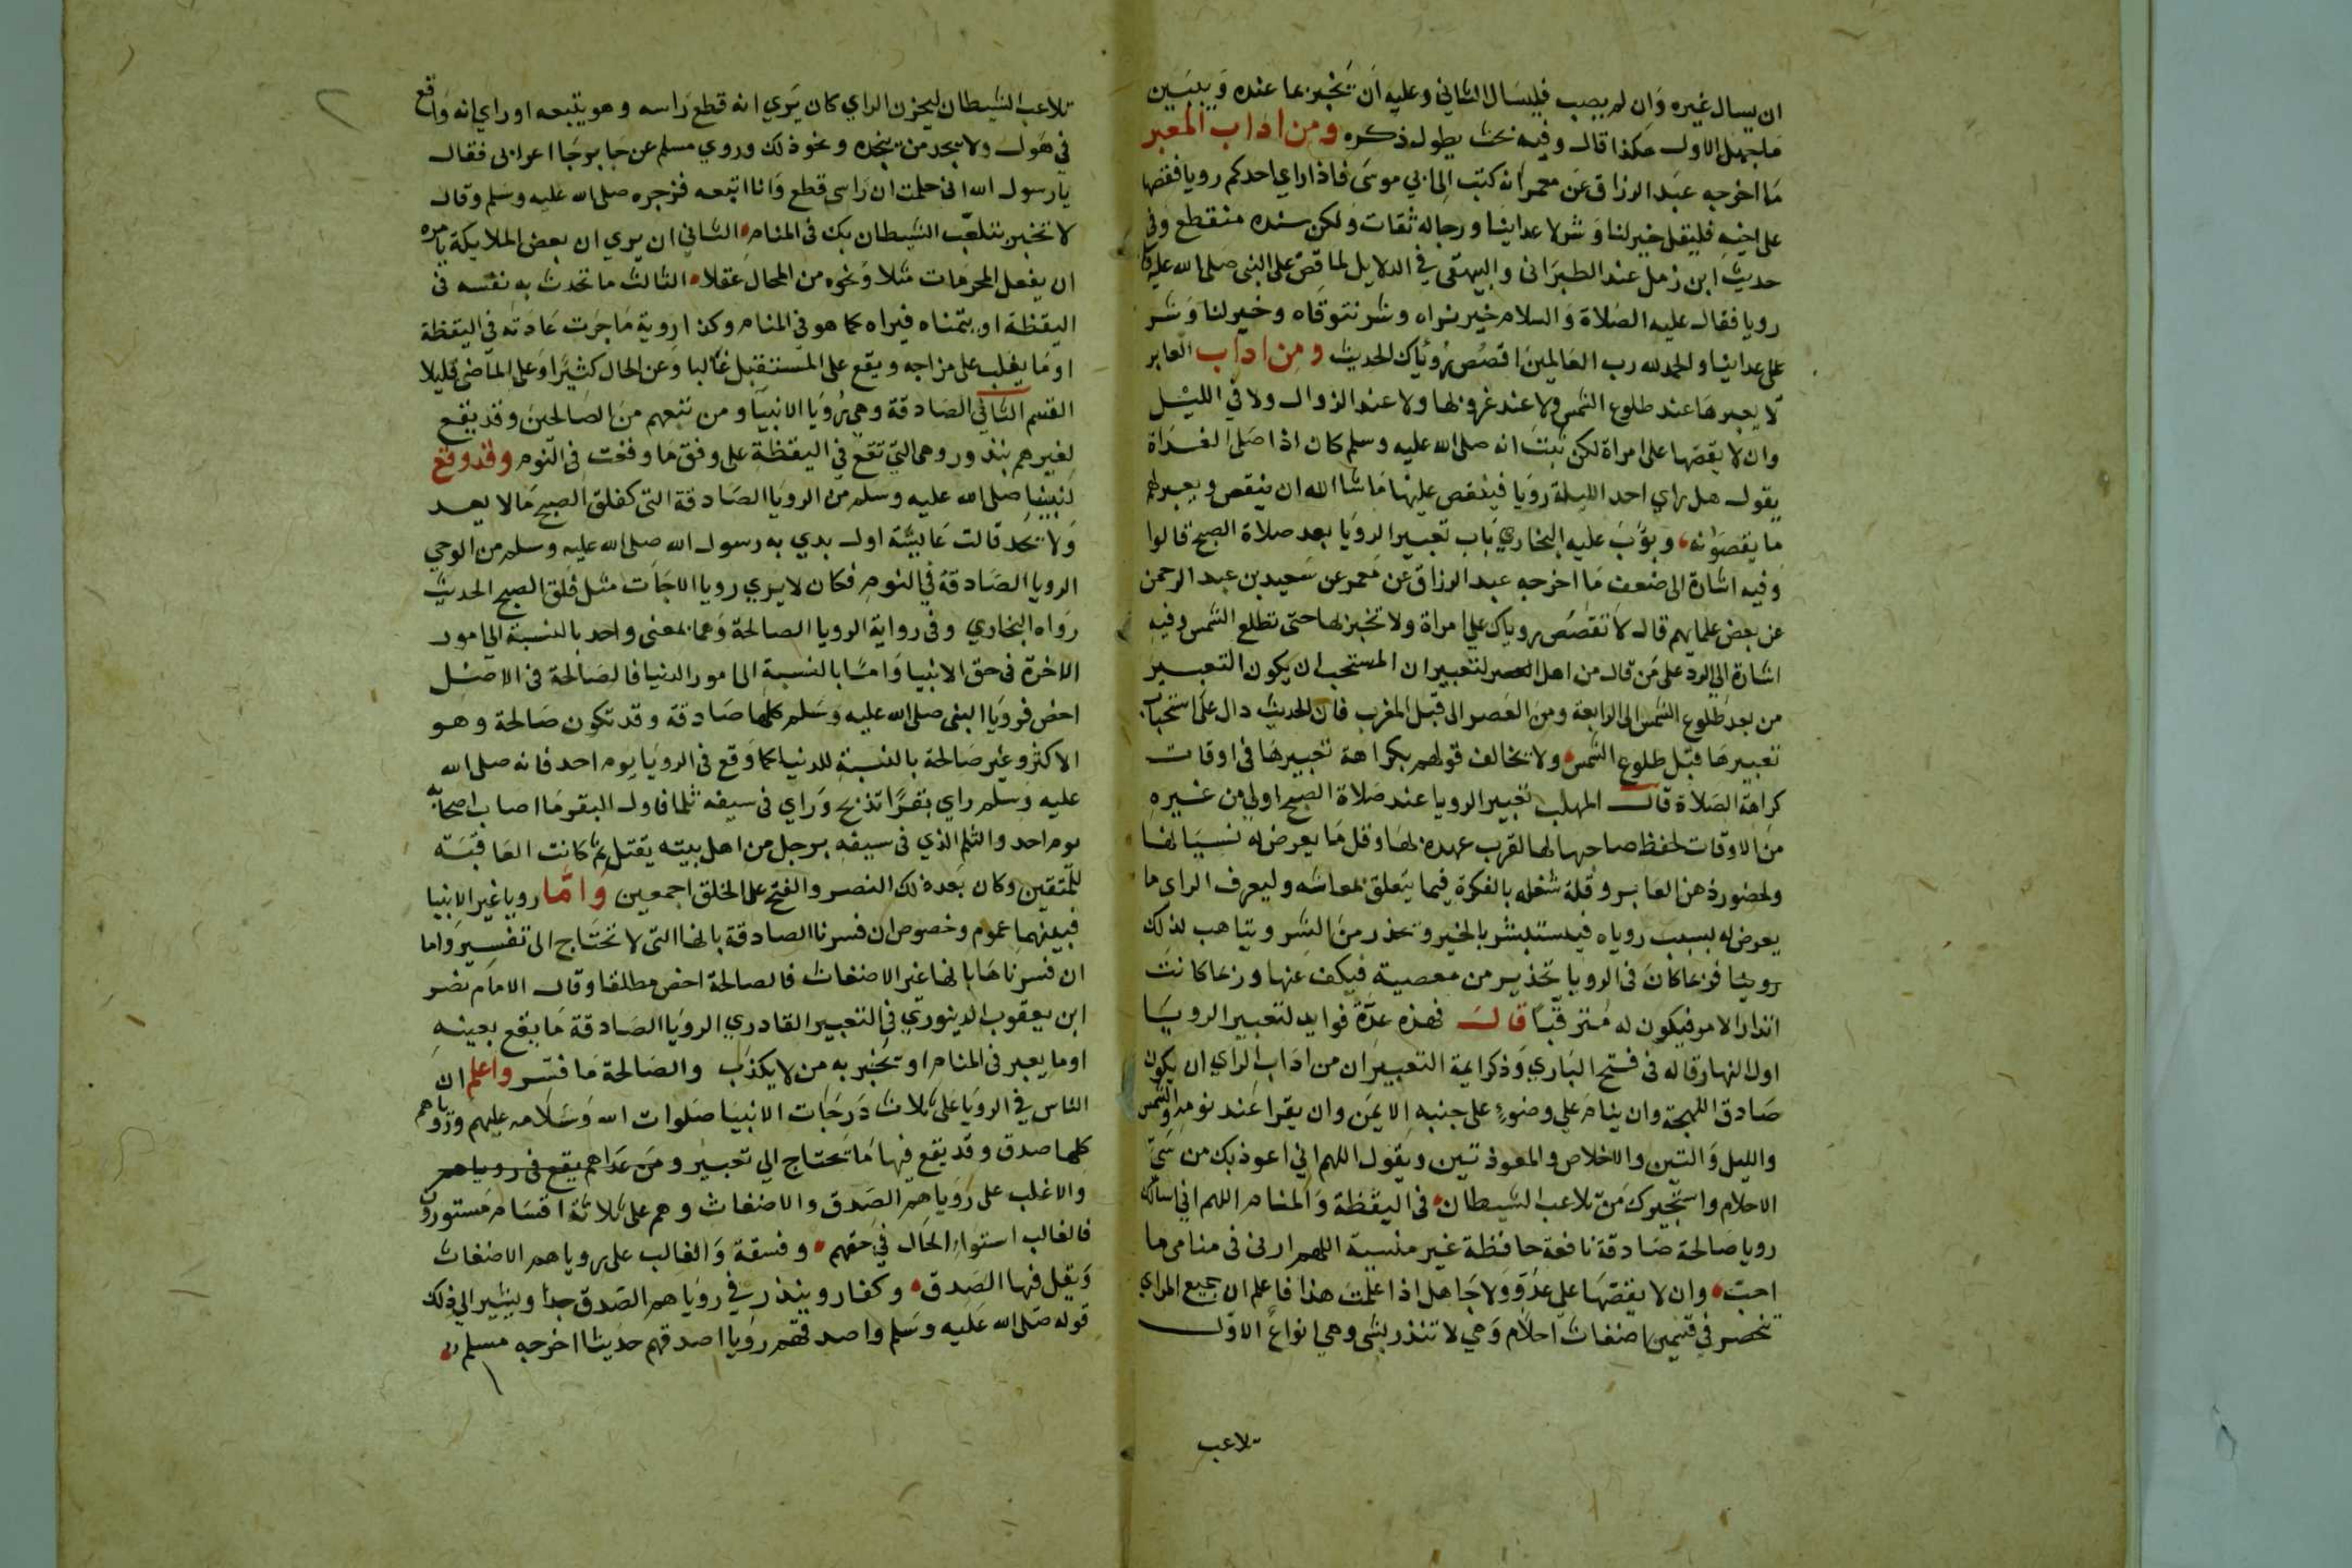 ان يسال غيره وان لم يصب فليسال الثاني وعليه ان يخبر بما عنده ويبين
ما جهل الاول هكذا قال وفيه بحث يطول ذكره ومن اداب المعبر
ما اخرجه عبد الرزاق عن معمر انه كتب الى ابي موسى فاذا راي احدكم رويا فقصها
على اخيه فليقل خير لنا وشر لاعداينا ورجاله ثقات ولكن سنده منقطع وفي
حديث ابن زمل عند الطبراني والبيهقي في الدلايل لما قص على النبي صلى الله عليه
رويا فقال عليه الصلاة والسلام خير نراه وشر نتوقاه وخير لنا وشر
على عداينا والحمد لله رب العالمين اقصص روياك الحديث ومن اداب العابر
لا يعبرها عند طلوع الشمس ولا عند غروبها ولا عند الزوال ولا في الليل
وان لا يقصها على امراة لكن ثبت انه صلى الله عليه وسلم كان اذا صلى الغداة
يقول هل راي احد الليلة رويا فيقص عليه ما شا الله ان يقص ويعبر لهم
ما يقصونه وبوب عليه البخاري باب تعبير الرويا بعد صلاة الصبح قالوا
وفيه اشارة الى ضعف ما اخرجه عبد الرزاق عن معمر عن سعيد بن عبد الرحمن
عن بعض علمايهم قال لا تقصص روياك على امراة ولا تخبر بها حتى تطلع الشمس وفيه
اشارة الى الرد على من قال من اهل التعبير ان المستحب ان يكون التعبير
من بعد طلوع الشمس الى الرابعة ومن العصر الى قبل المغرب فان الحديث دال على استحباب
تعبيرها قبل طلوع الشمس ولا يخالف قولهم بكراهة تعبيرها في اوقات
كراهة الصلاة قال المهلب تعبير الرويا عند صلاة الصبح اولى من غيره
من الاوقات لحفظ صاحبها لها لقرب عهده بها وقل ما يعرض له نسيانها
ولحضور ذهن العابر وقلة شغله بالفكرة فيما يتعلق بمعاشه وليعرف الراي ما
يعرض له بسبب روياه فيستبشر بالخير ويحذر من الشر ويتاهب لذلك
فربما كان في الرويا تحذير من معصية فيكف عنها وربما كانت
انذار الامر فيكون له مترقبا قال فهذه عدة فوايد لتعبير الرويا
اول النهار قاله في فتح الباري وذكر ايمة التعبير ان من اداب الراي ان يكون
صادق اللهجة وان ينام على وضوء على جنبه الايمن وان يقرا عند نومه والشمس
والليل والتين والاخلاص والمعوذتين ويقول اللهم اني اعوذ بك من سيئ
الاحلام واستجيرك من تلاعب الشيطان في اليقظة والمنام اللهم اني اسالك
رويا صالحة صادقة نافعة حافظة غير منسية اللهم ارني في منامي ما
احب وان لا يقصها على عدو ولا جاهل اذا علمت هذا فاعلم ان جميع المراي
تنحصر في قسمين اضغاث احلام وهي لا تنذر بشي وهي انواع الاول
تلاعب
تلاعب الشيطان ليحزن الراي كان يري انه قطع راسه وهو يتبعه او راي انه واقع
في هول ولا يجد من ينجده ونحو ذلك وروي مسلم عن جابر جا اعرابي فقال
يا رسول الله اني حلمت ان راسي قطع وانا اتبعه فزجره صلى الله عليه وسلم وقال
لا تخبر بتلعب الشيطان بك في المنام الثاني ان يري ان بعض الملايكة يامره
ان يفعل المحرمات مثلا ونحوه من المحال عقلا الثالث ما تحدث به نفسه في
اليقظة او يتمناه فيراه كما هو في المنام وكذا روية ما جرت عادته في اليقظة
او ما يغلب على مزاجه ويقع على المستقبل غالبا وعن الحال كثيرا وعلى الماضي قليلا
القسم الثاني الصادقة وهي رويا الانبيا ومن تبعهم من الصالحين وقد يقع
لغيرهم بندور وهي التي تقع في اليقظة على وفق ما وقعت في النوم وقد وقع
لنبينا صلى الله عليه وسلم من الرويا الصادقة التي كفلق الصبح ما لا يعد
ولا يحد قالت عايشة اول بدي به رسول الله صلى الله عليه وسلم من الوحي
الرويا الصادقة في النوم فكان لا يري رويا الا جات مثل فلق الصبح الحديث
رواه البخاري وفي رواية الرويا الصالحة وهما بمعنى واحد بالنسبة الى امور
الاخرة في حق الانبيا واما بالنسبة الى امور الدنيا فالصالحة في الاصل
اخص فرويا النبي صلى الله عليه وسلم كلها صادقة وقد تكون صالحة وهو
الاكثر وغير صالحة بالنسبة للدنيا كما وقع في الرويا يوم احد فانه صلى الله
عليه وسلم راي بقرا تذبح وراي في سيفه ثلما فاول البقر ما اصاب اصحابه
يوم احد والثلم الذي في سيفه برجل من اهل بيته يقتل ثم كانت العاقبة
للمتقين وكان بعد ذلك النصر والفتح على الخلق اجمعين واما رويا غير الانبيا
فبينهما عموم وخصوص ان فسرنا الصادقة بانها التي لا تحتاج الى تفسير واما
ان فسرناها بانها غير الاضغاث فالصالحة اخص مطلقا وقال الامام نصر
ابن يعقوب الدينوري في التعبير القادري الرويا الصادقة ما يقع بعينه
او ما يعبر في المنام او يخبر به من لا يكذب والصالحة ما فسر واعلم ان
الناس في الرويا على ثلاث درجات الانبيا صلوات الله وسلامه عليهم وروياهم
كلها صدق وقد يقع فيها ما يحتاج الى تعبير ومن عداهم يقع في روياهم
والاغلب على روياهم الصدق والاضغاث وهم على ثلاثة اقسام مستورون
فالغالب استواء الحال في حقهم وفسقة والغالب على روياهم الاضغاث
ويقل فيها الصدق وكفار ويندر في روياهم الصدق جدا ويشير الى ذلك
قوله صلى الله عليه وسلم واصدقهم رويا اصدقهم حديثا اخرجه مسلم